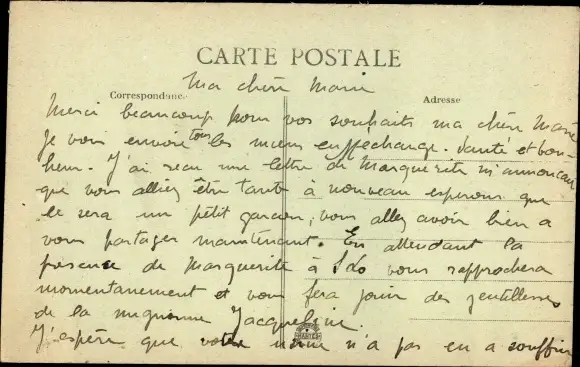 CARTE POSTALE
Ma chère Marie
Correspondance
Adresse
Merci beaucoup pour vos souhaits ma chère Marie
je vous envoie tous les miens en échange. Santé et bon-
heur. J'ai reçu une lettre de Marguerite m'annonçant
que vous alliez être tante à nouveau esperons que
ce sera un petit garçon, vous allez avoir bien à
vous partager maintenant. En attendant la
présence de Marguerite à St Lo vous rapprochera
momentanement et vous fera jouir des gentillesses
de la mignonne Jacqueline.
J'espère que votre mère n'a pas eu a souffrir